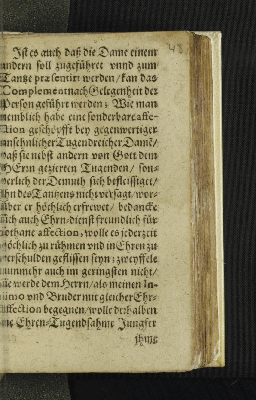 48.
Ist es auch daß die Dame einem
andern soll zugeführet vnnd zum
Tantze præsentirt werden/ kan das
Complement nach Gelegenheit der
Person geführt werden: Wie man
nemblich habe eine sonderbare affe-
ction geschöpfft bey gegenwertiger
ansehnlicher Tugendreicher Dame/
daß sie nebst andern von Gott dem
HErrn gezierten Tugenden/ son-
derlich der Demuth sich befleissiget/
ihn des Tantzens nicht versagt/ wor-
über er höchlich erfrewet/ bedancke
sich auch Ehrn-dienst freundlich für
sothane affection, wolle es jederzeit
höchlich zu rühmen vnd in Ehren zu
verschulden geflissen seyn: zweyffele
nunmehr auch im geringsten nicht/
sie werde dem Herrn/ als meinen In-
timo vnd Bruder mit gleicher Ehr-
affection begegnen/ wolle derhalben
die Ehren-Tugendsahme Jungfer
ihme